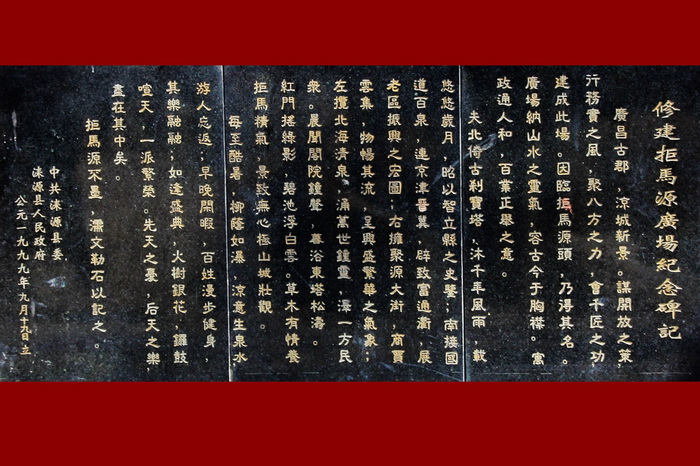 修建拒馬源廣場紀念碑記
廣昌古郡，涼城新景。謀開放之策，
行務實之風，聚八方之力，會千匠之功，
建成此場。因臨拒馬源頭，乃得其名。
廣場納山水之靈氣，容古今于胸襟。寓
政通人和，百業正舉之意。
夫北倚古剎寶塔，沐千年風雨，載
悠悠歲月，昭以智立縣之史鑒；南接國
道百泉，連京津晉冀，辟致富通衢，展
老區振興之宏圖。右擁聚源大街，商賈
雲集，物暢其流，呈興盛繁華之氣象；
左攬北海清泉，涌萬世鐘靈，澤一方民
衆。晨聞閣院鐘聲，暮浴東塔松濤。
紅門搖綠影，碧池浮白雲。草木有情養
拒馬精氣，景致無心極山城壯觀。
每至酷暑，柳蔭如瀑，涼意生泉水
游人忘返，早晚閑暇，百姓漫步健身，
其樂融融，如逢盛典，火樹銀花，鑼鼓
喧天，一派繁榮。先天之憂，后天之樂，
盡在其中矣。
拒馬源不墨，濡文勒石以記之。
中共淶源縣委
淶源縣人民政府
公元一九九九年九月十九日立